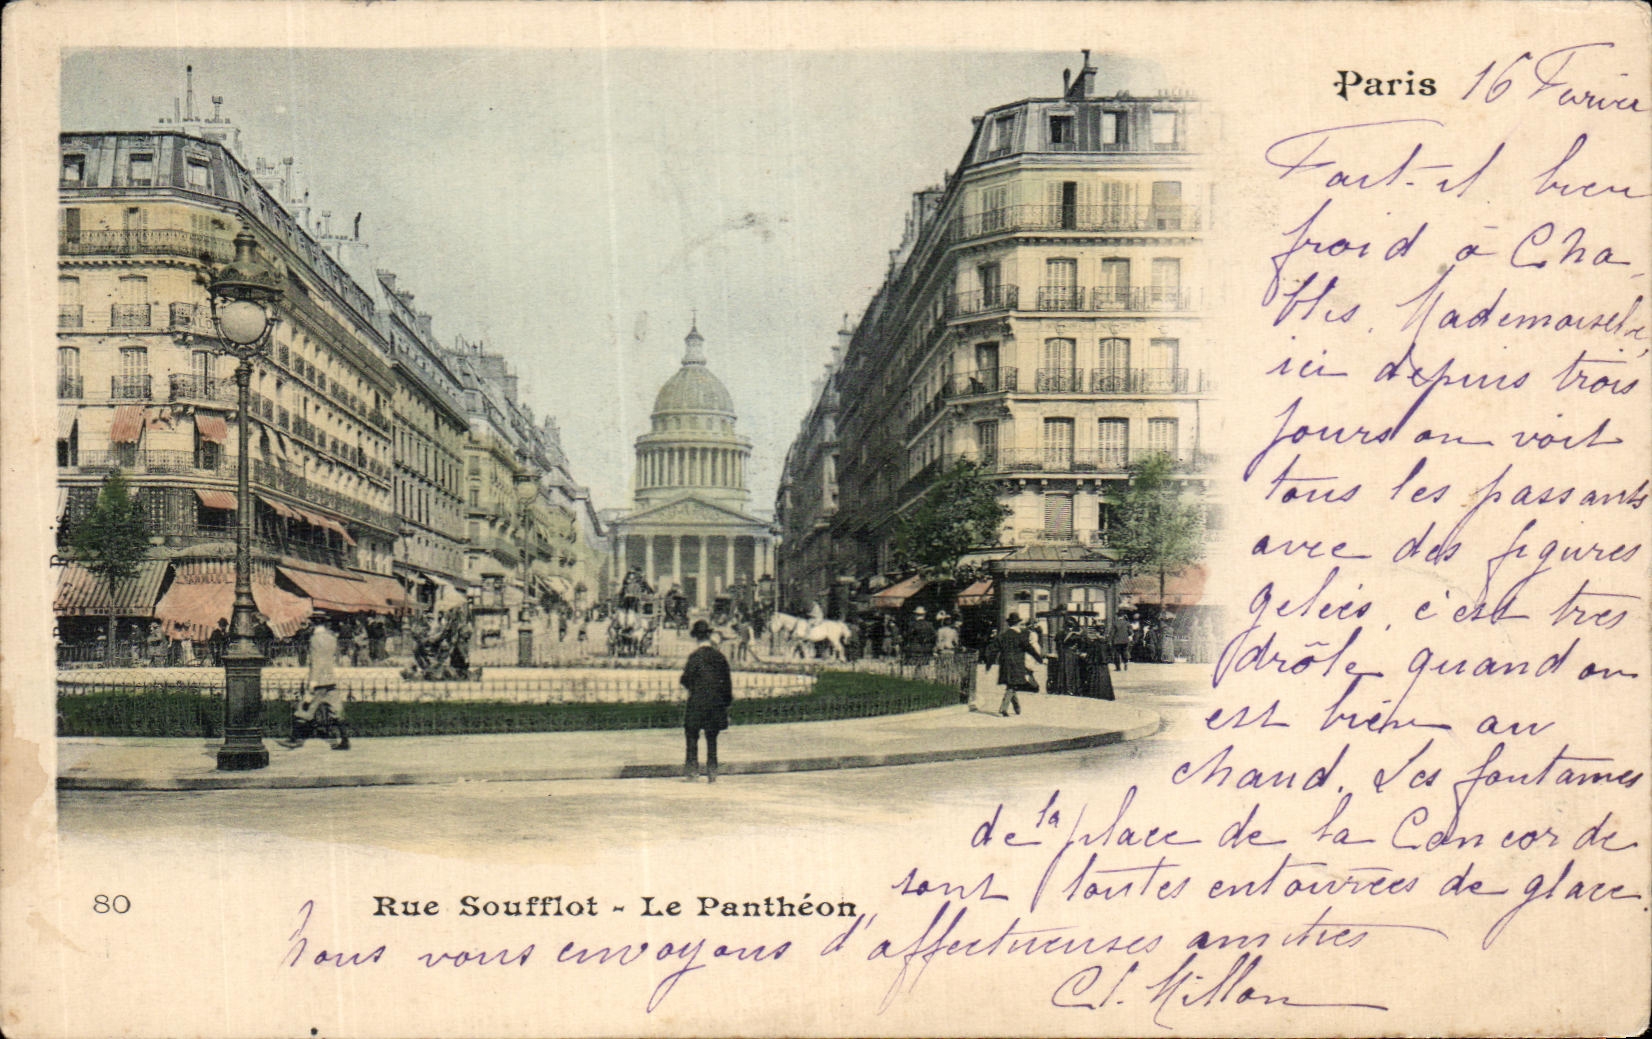 Paris 16 Fevrier
Fait-il bien
froid à Cha-
blis, Mademoiselle,
ici depuis trois
jours on voit
tous les passants
avec des figures
gelées, c'est tres
drôle quand on
est bien au
chaud. Les fontaines
de la place de la Concorde
sont toutes entourées de glace.
80 Rue Soufflot - Le Panthéon
Nous vous envoyons d'affectueuses amities
Cl. Millon